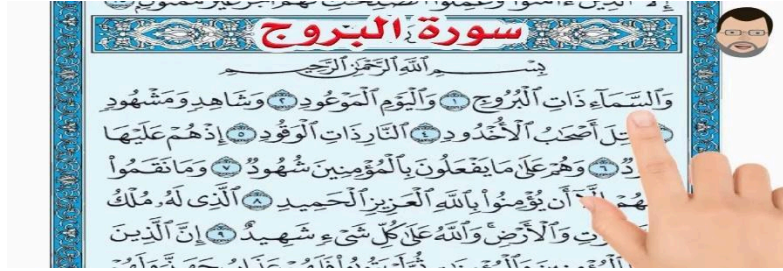 سورة البروج
بِسْمِ ٱللَّهِ ٱلرَّحْمَٰنِ ٱلرَّحِيمِ
وَٱلسَّمَآءِ ذَاتِ ٱلْبُرُوجِ ١ وَٱلْيَوْمِ ٱلْمَوْعُودِ ٢ وَشَاهِدٍ وَمَشْهُودٍ
أَصْحَٰبُ ٱلْأُخْدُودِ ٤ ٱلنَّارِ ذَاتِ ٱلْوَقُودِ ٥ إِذْ هُمْ عَلَيْهَا
٦ وَهُمْ عَلَىٰ مَا يَفْعَلُونَ بِٱلْمُؤْمِنِينَ شُهُودٌ ٧ وَمَا نَقَمُوا۟
إِلَّآ أَن يُؤْمِنُوا۟ بِٱللَّهِ ٱلْعَزِيزِ ٱلْحَمِيدِ ٨ ٱلَّذِى لَهُۥ مُلْكُ
وَٱلْأَرْضِ وَٱللَّهُ عَلَىٰ كُلِّ شَىْءٍ شَهِيدٌ ٩ إِنَّ ٱلَّذِينَ